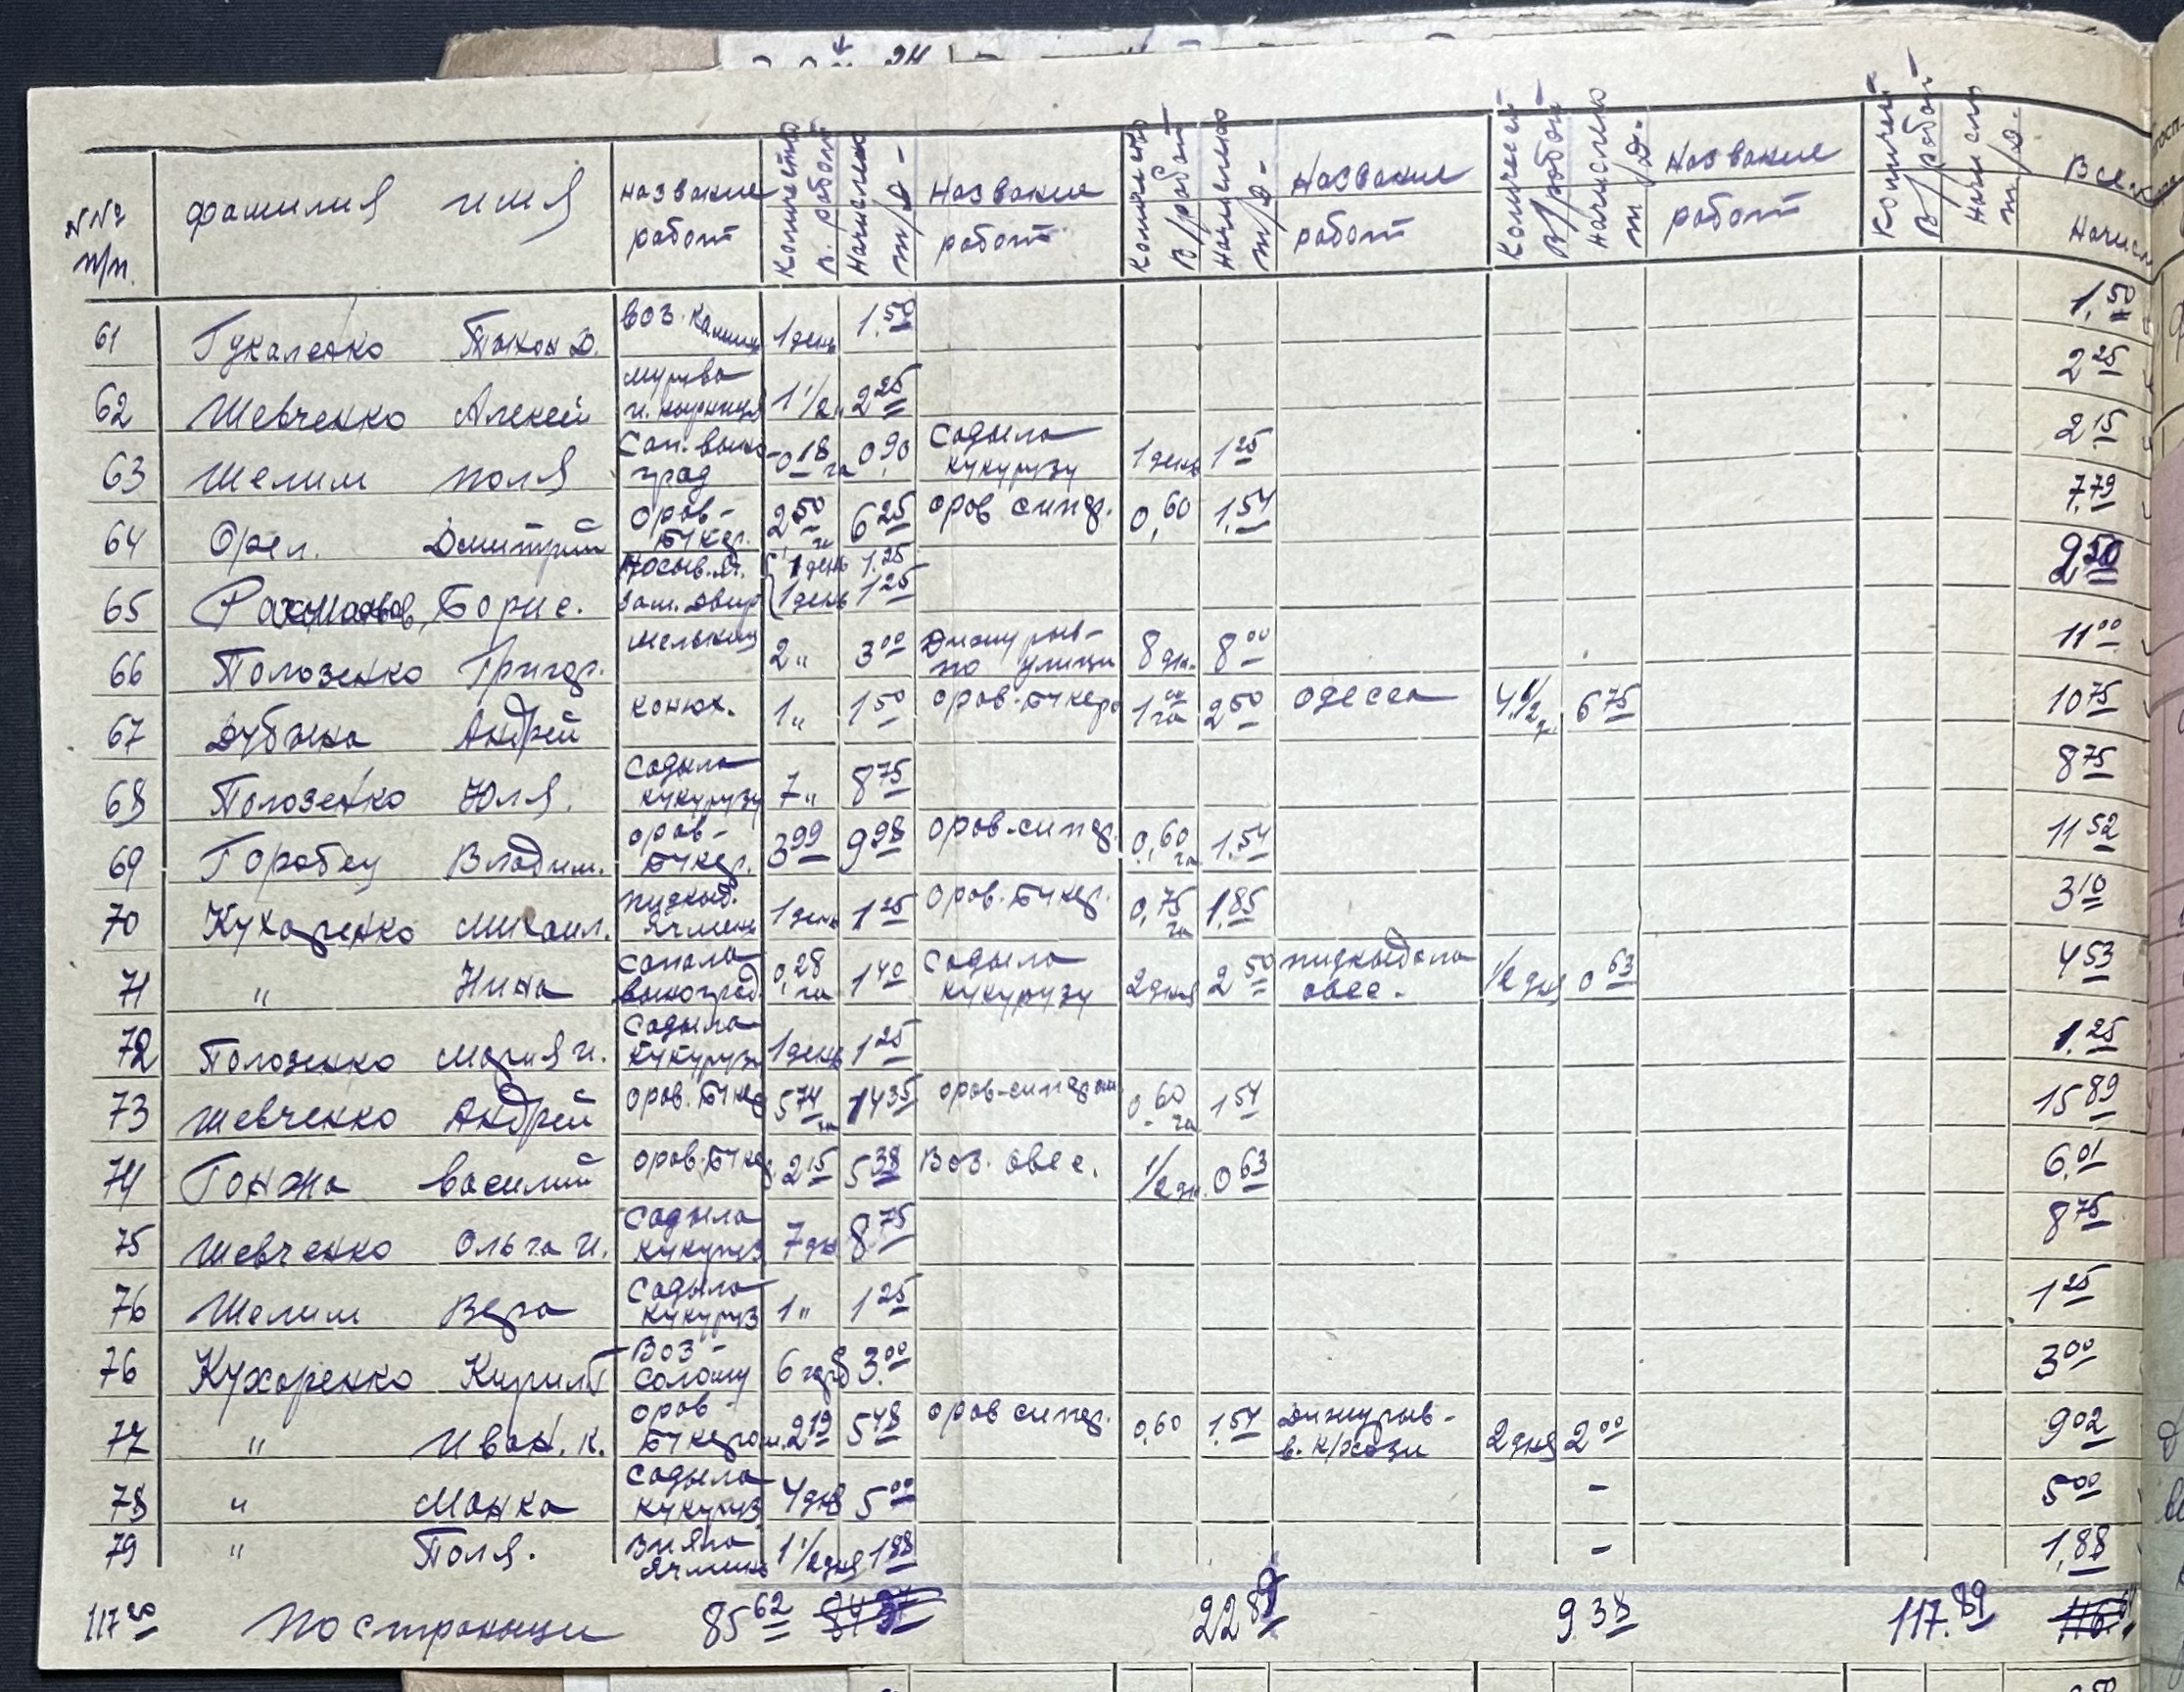 NNº п/п. фамилия имя название работ Количество в. работ Начислено т/д- Название работ Количество в/работ Начислено т/д- Название работ Количест в/работ начислено т/д- Название работ Количест в/работ Начислен т/д. Всего Начисл
61 Гукаленко Тихон Д. воз. камин 1 день 1.50 1,50
62 Шевченко Алексей 1 1/2 " 2 25 2 25
63 Шелим поля Сап. вино град 0 18 га 0,90 Садыла кукурузу 1 день 1 25 2 15
64 Орел. Дмитрий Оров- Букер. 2 50 га 6 25 оров сипар. 0,60 1.54 7.79
65 Рахманов, Борис. 1 день 1.25 1 день 1 25 2 50
66 Полозенко Григор. 2 " 3 00 Дижурыв- по улици 8 дн. 8 00 11 00
67 Дубжка Андрей конюх. 1 " 1 50 оров-Букеро 1 00 га 2 50 Одесса 4 1/2 д. 6 75 10 75
68 Полозенко Юля. Садыла кукурузу 7 " 8 75 8 75
69 Горобец Владим. оров- Букер. 3 99 9 98 оров-сипар. 0,60 га 1.54 11 52
70 Кухаренко Михаил. пидкыд. Ячмень 1 день 1 25 Оров. Букер. 0,75 га 1.85 3 10
71 " Нина Сапала виноград. 0,28 га 1 40 Садыла кукурузу 2 дня 2 50 пидкыдала овес. 1/2 дня 0 63 4 53
72 Полозенко Мария И. Садыла кукурузу 1 день 1 25 1.25
73 Шевченко Андрей оров. Букер 5 74 га 14 35 оров-сипаром 0 60 га 1 54 15 89
74 Гонжа Василий оров. Букер. 2 15 5 38 Воз. овес. 1/2 дн. 0 63 6.01
75 Шевченко Ольга И. Садыла кукуруз 7 дн 8 75 8 75
76 Шелим Вера Садыла кукуруз 1 " 1 25 1 25
76 Кухаренко Кирилл Воз- солому 6 3.00 3 00
77 " Иван. К. оров- Букером. 2 19 5 48 оров сипар. 0,60 1.54 Дижурыв- в. к/хози 2 дня 2 00 9 02
78 " Манка Садыла кукуруз. 4 дня 5 00 - 5 00
79 " Поля. Вияла Ячмень 1 1/2 дня 1 88 - 1,88
117 20 По страници 85 62 22 89 9 38 117.89